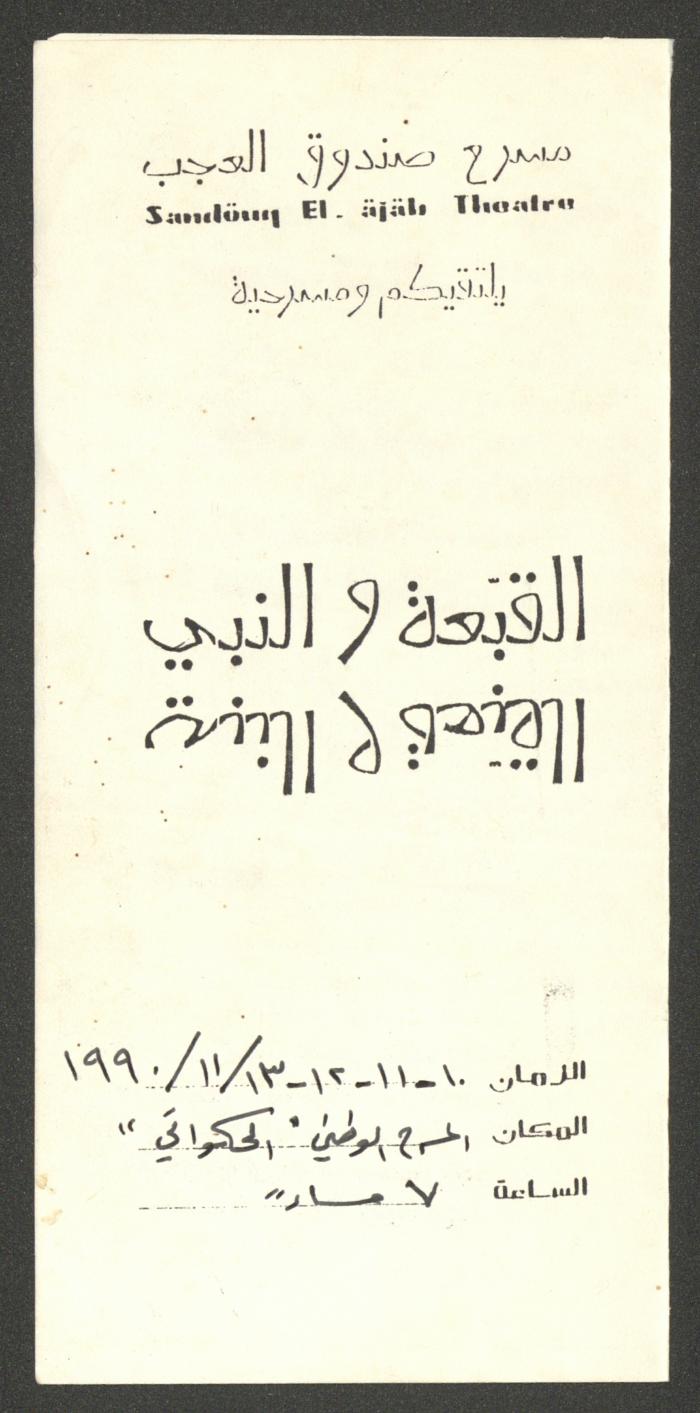 مسرح صندوق العجب
Sandöuq El - äjäb Theatre
يلتقيكم ومسرحية
القبّعة و النبي
القبّعة و النبي
الزمان ١٠-١١-١٢-١٣/١١/١٩٩٠
المكان المسرح الوطني "الحكواتي"
الساعة ٧ مساءً